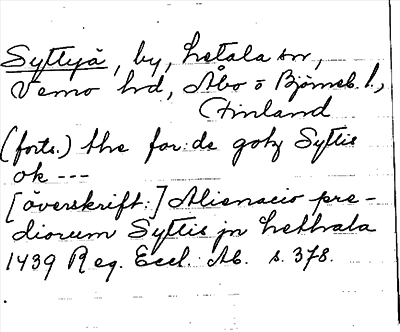 Syltyjä, by, Letala sn,
Vemo hrd, Åbo o Björneb. l.,
Finland
(forts.) the for:de gotz Syltis
ok ---
[överskrift:] Alienacio pre-
diorum Syltis jn Lethala
1439 Reg. Eccl. Ab. s. 378.